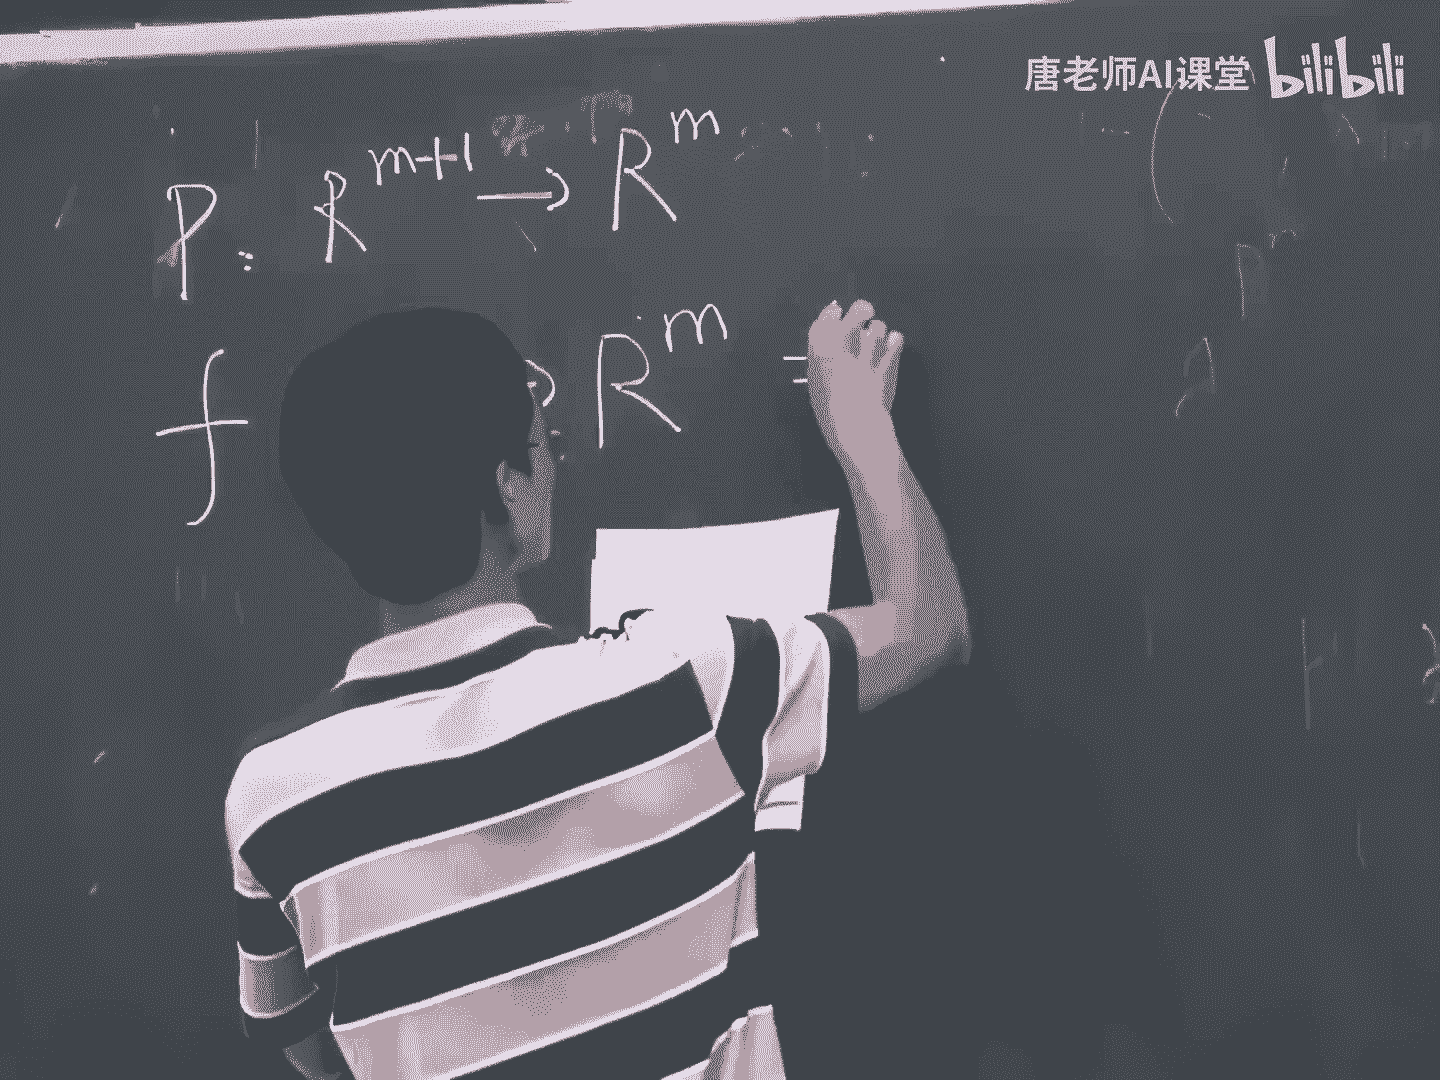 唐老师AI课堂 bilibili
P: R^{m+1} → R^m
f R^m =